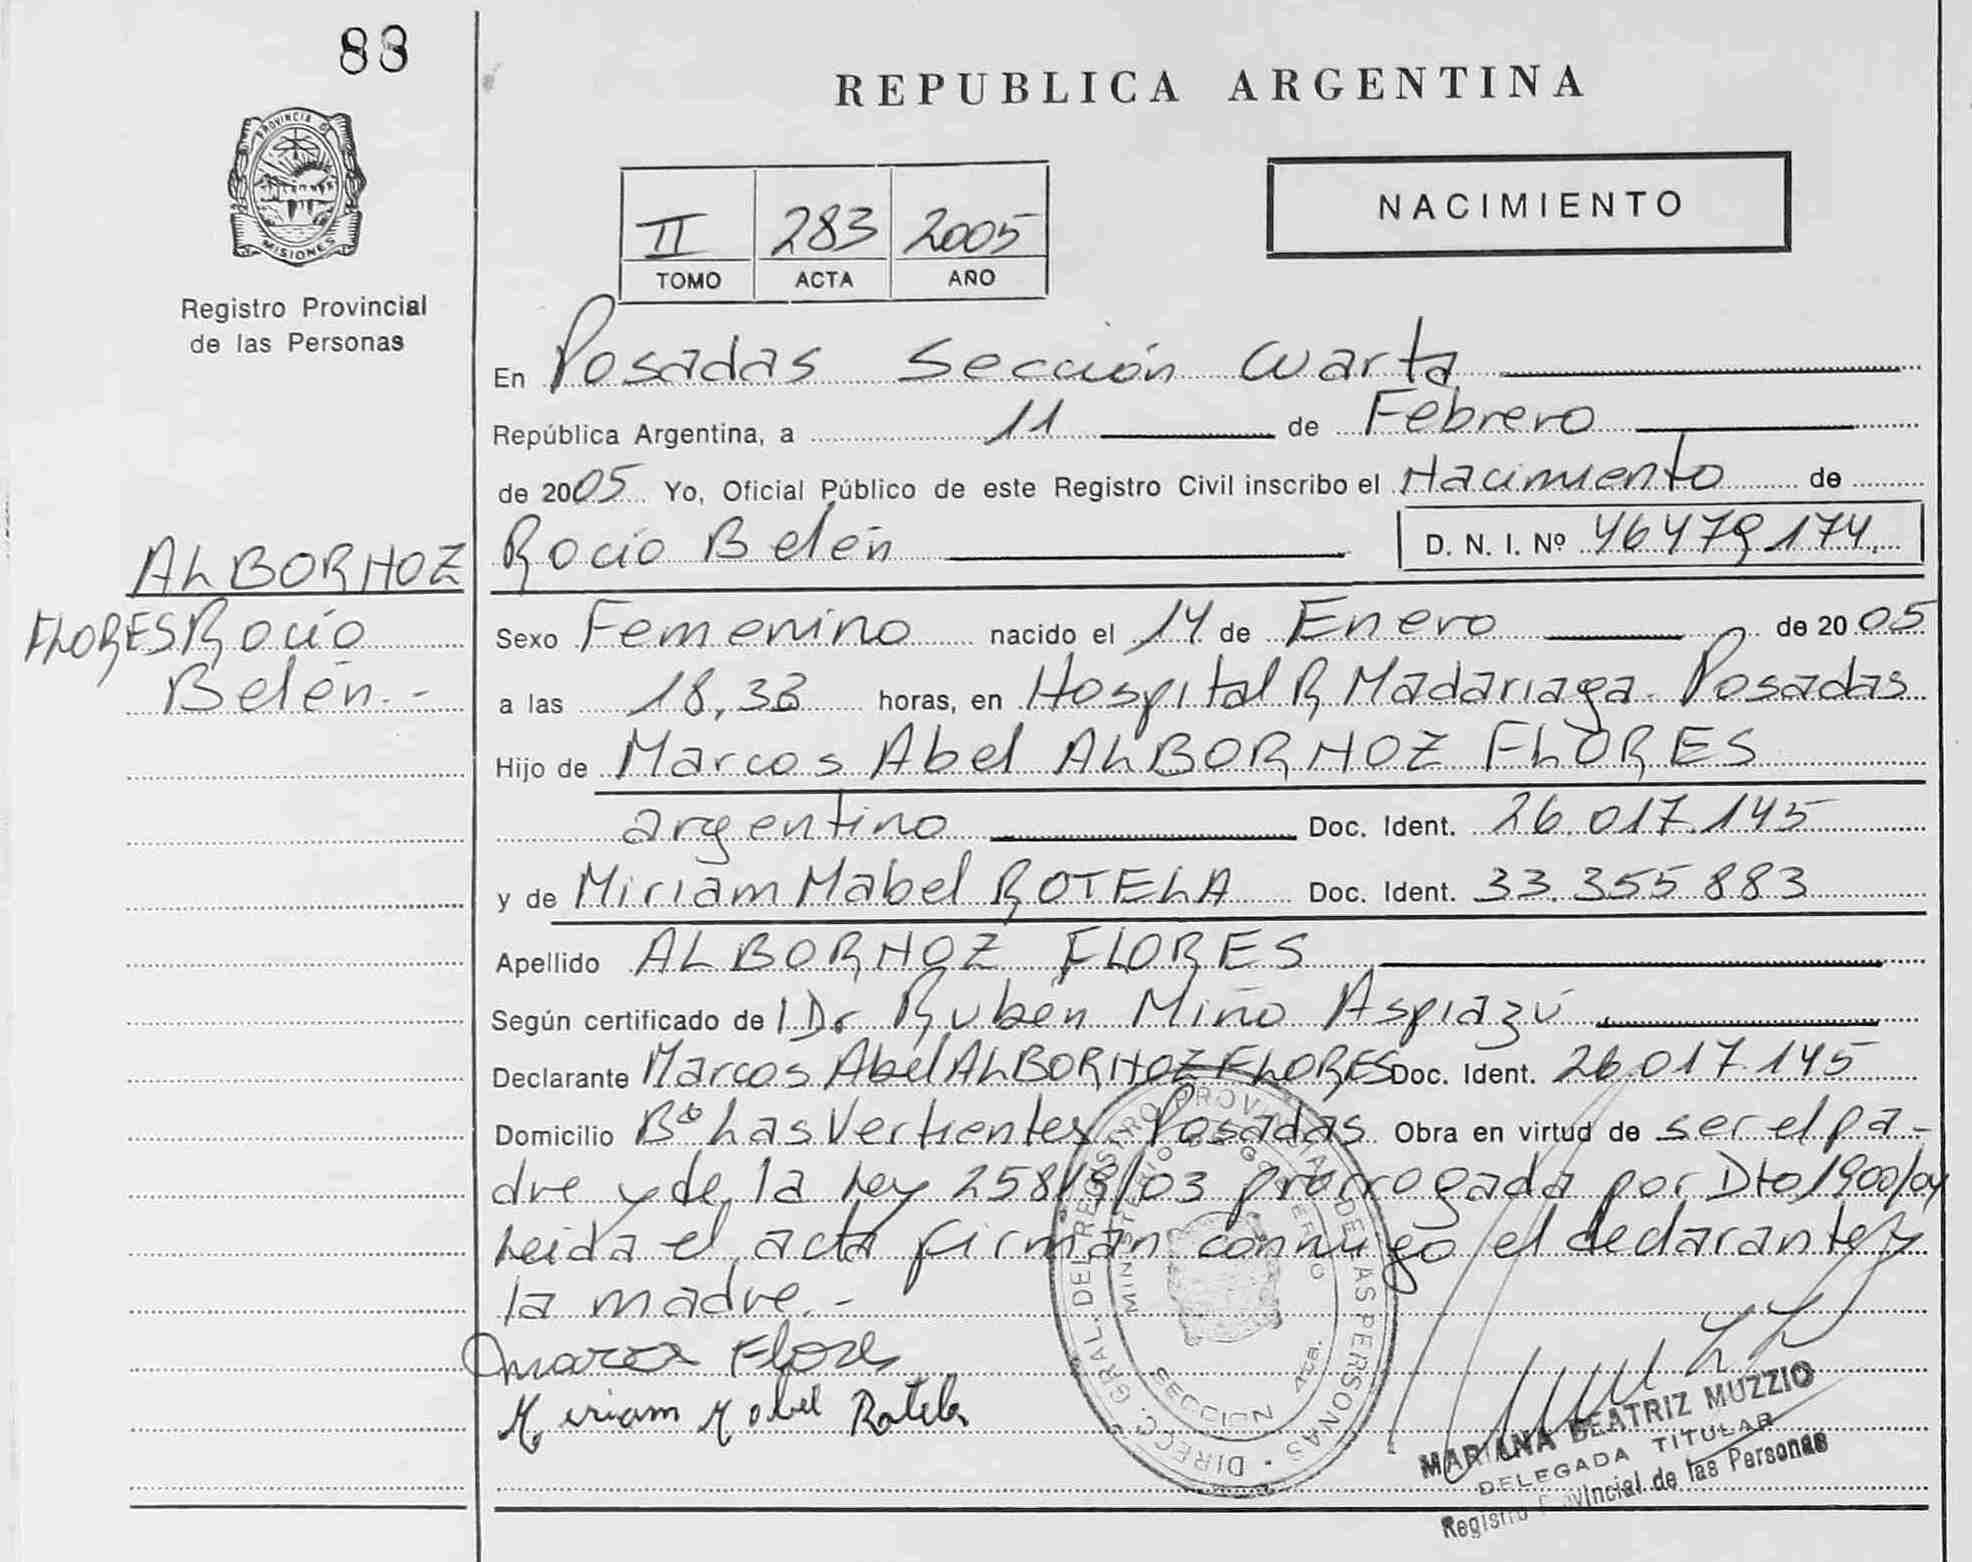 88
PROVINCIA D
MISIONES
Registro Provincial
de las Personas
ALBORNOZ
FLORES Rocío
Belén.-
REPUBLICA ARGENTINA
II 283 2005
TOMO ACTA AÑO
NACIMIENTO
En Posadas Sección Cuarta
República Argentina, a 11 de Febrero
de 2005 Yo, Oficial Público de este Registro Civil inscribo el Nacimiento de
Rocío Belén D. N. I. Nº 46479174.
Sexo Femenino nacido el 14 de Enero de 2005
a las 18,33 horas, en Hospital R Madariaga. Posadas
Hijo de Marcos Abel ALBORNOZ FLORES
argentino Doc. Ident. 26.017.145
y de Miriam Mabel ROTELA Doc. Ident. 33.355.883
Apellido ALBORNOZ FLORES
Según certificado de l Dr Rubén Miño Aspiazú
Declarante Marcos Abel ALBORNOZ FLORES Doc. Ident. 26.017.145
Domicilio Bº Las Vertientes - Posadas Obra en virtud de ser el pa-
dre y de la Ley 25819/03 prorrogada por Dto 1900/04
Leida el acta firman conmigo el declarante y
la madre.-
Flores
Miriam Mabel Rotela
DIRECC. GRAL. DEL REGISTRO PROVINCIAL DE LAS PERSONAS
MINISTERIO DE GOBIERNO
SECCION 4ta.
MARIANA BEATRIZ MUZZIO
DELEGADA TITULAR
Registro Provincial de las Personas